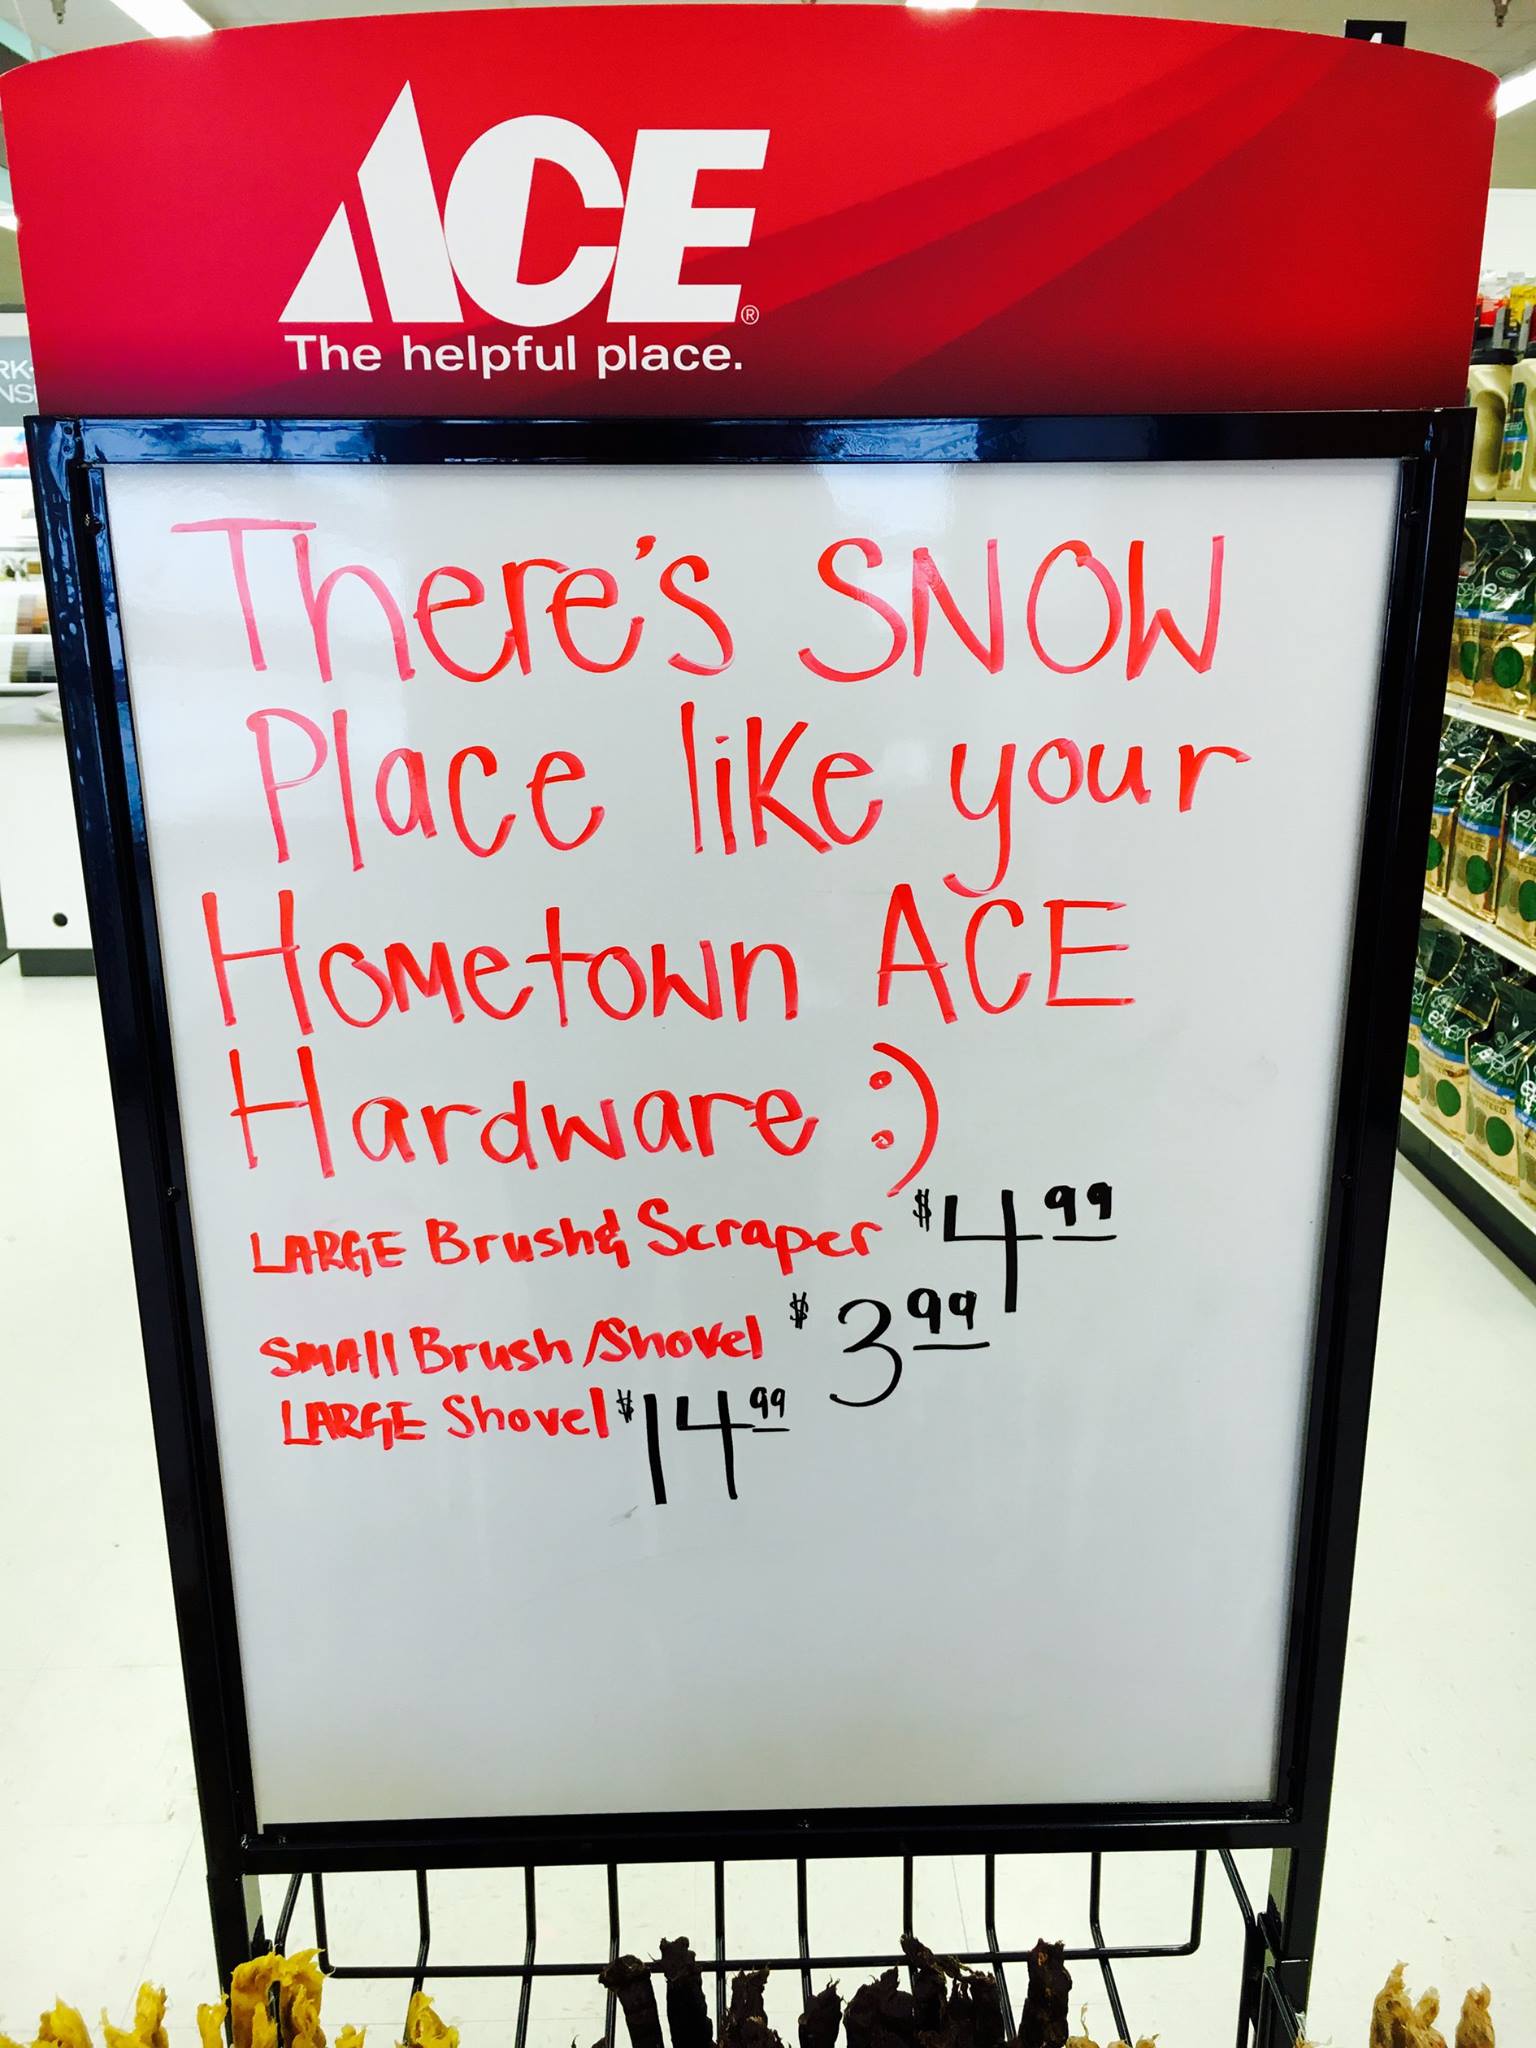 ACE®
The helpful place.
There's SNOW
Place like your
Hometown ACE
Hardware :)
LARGE Brush & Scraper $4.99
SMAll Brush/Shovel $3.99
LARGE Shovel $14.99